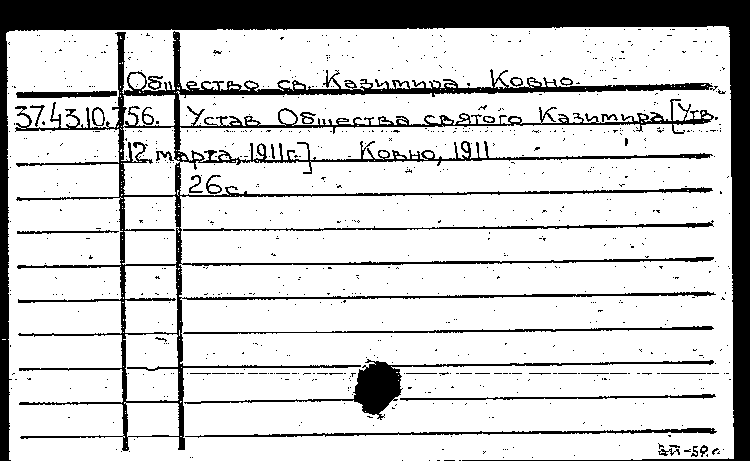 Общество св. Казимира. Ковно.
37.43.10.756. Устав Общества святого Казимира. [Утв.
12 марта, 1911г.]. Ковно, 1911
26 с.